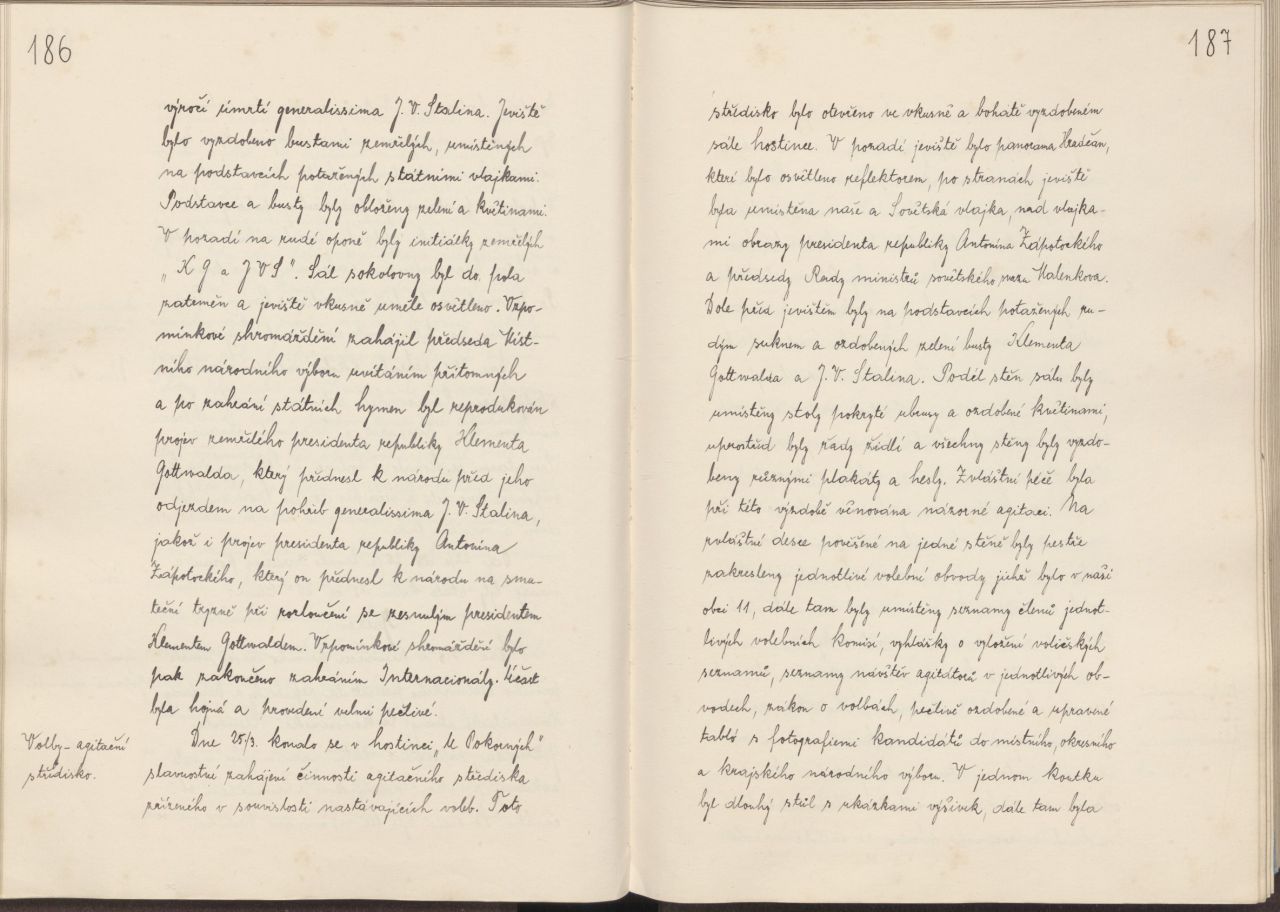 186
výročí úmrtí generalissima J. V. Stalina. Jeviště
bylo vyzdobeno bustami zemřelých, umístěných
na podstavcích potažených státními vlajkami.
Podstavce a busty byly obloženy zelení a květinami.
V pozadí na rudé oponě byly iniciálky zemřelých
„K G a J V S". Sál sokolovny byl do pola
zateměn a jeviště vkusně uměle osvětleno. Vzpo-
mínkové shromáždění zahájil předseda Míst-
ního národního výboru uvítáním přítomných
a po zahrání státních hymen byl reprodukován
projev zemřelého presidenta republiky Klementa
Gottwalda, který přednesl k národu před jeho
odjezdem na pohřeb generalissima J. V. Stalina,
jakož i projev presidenta republiky Antonína
Zápotockého, který on přednesl k národu na smu-
teční tryzně při rozloučení se zesnulým presidentem
Klementem Gottwaldem. Vzpomínkové shromáždění bylo
pak zakončeno zahráním Internacionály. Účast
byla hojná a provedení velmi pečlivé.
Volby - agitační
středisko.
Dne 25/3. konalo se v hostinci „U Pokorných"
slavnostní zahájení činnosti agitačního střediska
zřízeného v souvislosti nastávajících voleb. Toto
187
středisko bylo otevřeno ve vkusně a bohatě vyzdobeném
sále hostince. V pozadí jeviště bylo panorama Hradčan,
které bylo osvětleno reflektorem, po stranách jeviště
byla umístěna naše a Sovětská vlajka, nad vlajka-
mi obrazy presidenta republiky Antonína Zápotockého
a předsedy Rady ministrů sovětského svazu Malenkova.
Dole před jevištěm byly na podstavcích potažených ru-
dým suknem a ozdobených zelení busty Klementa
Gottwalda a J. V. Stalina. Podél stěn sálu byly
umístěny stoly pokryté ubrusy a ozdobené květinami,
uprostřed byly řady židlí a všechny stěny byly vyzdo-
beny různými plakáty a hesly. Zvláštní péče byla
při této výzdobě věnována názorné agitaci. Na
zvláštní desce pověšené na jedné stěně byly pestře
zakresleny jednotlivé volební obvody jichž bylo v naší
obci 11, dále tam byly umístěny seznamy členů jednot-
livých volebních komisí, vyhlášky o vyložení voličských
seznamů, seznamy návštěv agitátorů v jednotlivých ob-
vodech, zákon o volbách, pečlivě ozdobené a upravené
tabló s fotografiemi kandidátů do místního, okresního
a krajského národního výboru. V jednom koutku
byl dlouhý stůl s ukázkami výšivek, dále tam byla